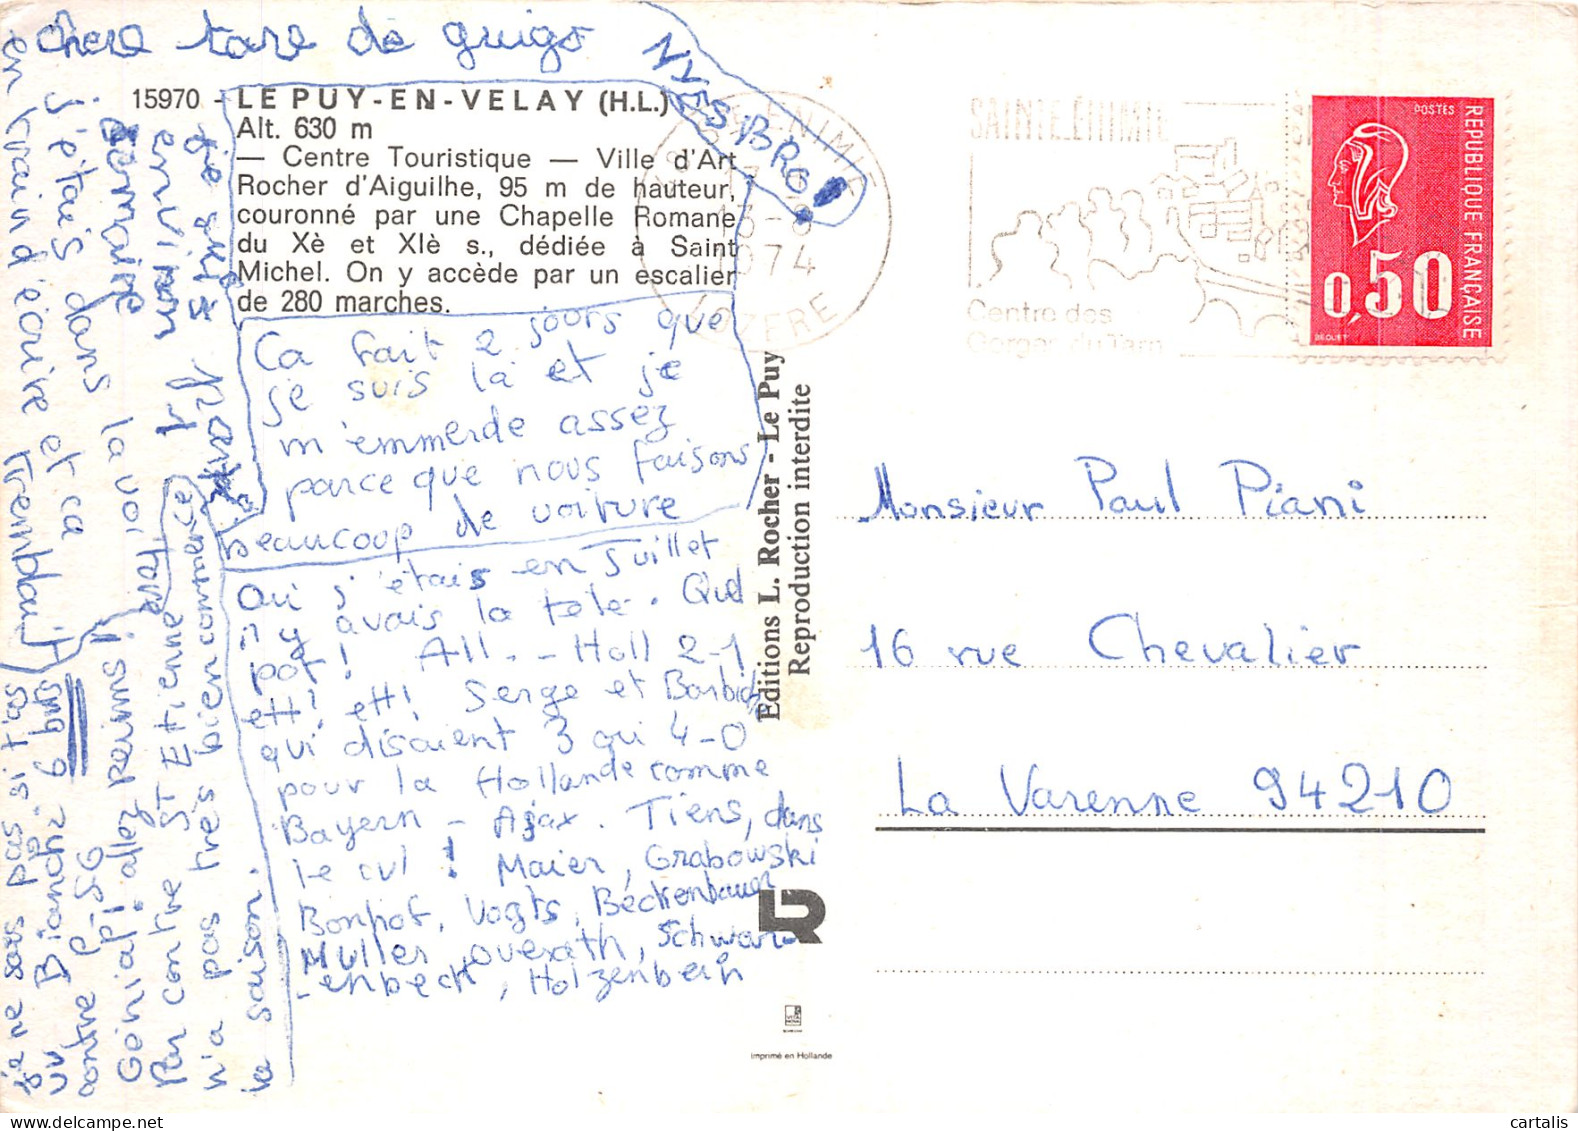 chere tare de guigo
NYES.BRO!
15970 - LE PUY-EN-VELAY (H.L.)
Alt. 630 m
— Centre Touristique — Ville d'Art
Rocher d'Aiguilhe, 95 m de hauteur,
couronné par une Chapelle Romane
du Xè et XIè s., dédiée à Saint
Michel. On y accède par un escalier
de 280 marches.
Ca fait 2 jours que
je suis là et je
m'emmerde assez
parce que nous faisons
beaucoup de voiture
Oui j'étais en Juillet
il y avais la télé. Quel
pot! All. - Holl 2-1
ett! ett! Serge et Barbiche
qui disaient 3 oui 4-0
pour la Hollande comme
Bayern - Ajax. Tiens, dans
le cul! Maier, Grabowski
Bonhof, Vogts, Beckenbauer
Muller, Overath, Schwarz
-enbeck, Holzenbein
je suis
environ 1
semaine
j'étais dans la voiture
en train d'écrire et ca tremblait
je ne sais pas si t'as
vu Bianchi: 6 buts
contre P-SG
Génial! allez reims!
Par contre ST Etienne
n'a pas très bien commencé
la saison.
SAINTE ENIMIE
13-8
1974
LOZERE
SAINTE.ENIMIE
Centre des
Gorges du Tarn
POSTES
REPUBLIQUE FRANÇAISE
0,50
BEQUET
Editions L. Rocher - Le Puy
Reproduction interdite
LR
imprimé en Hollande
Monsieur Paul Piani
16 rue Chevalier
La Varenne 94210
cartalis